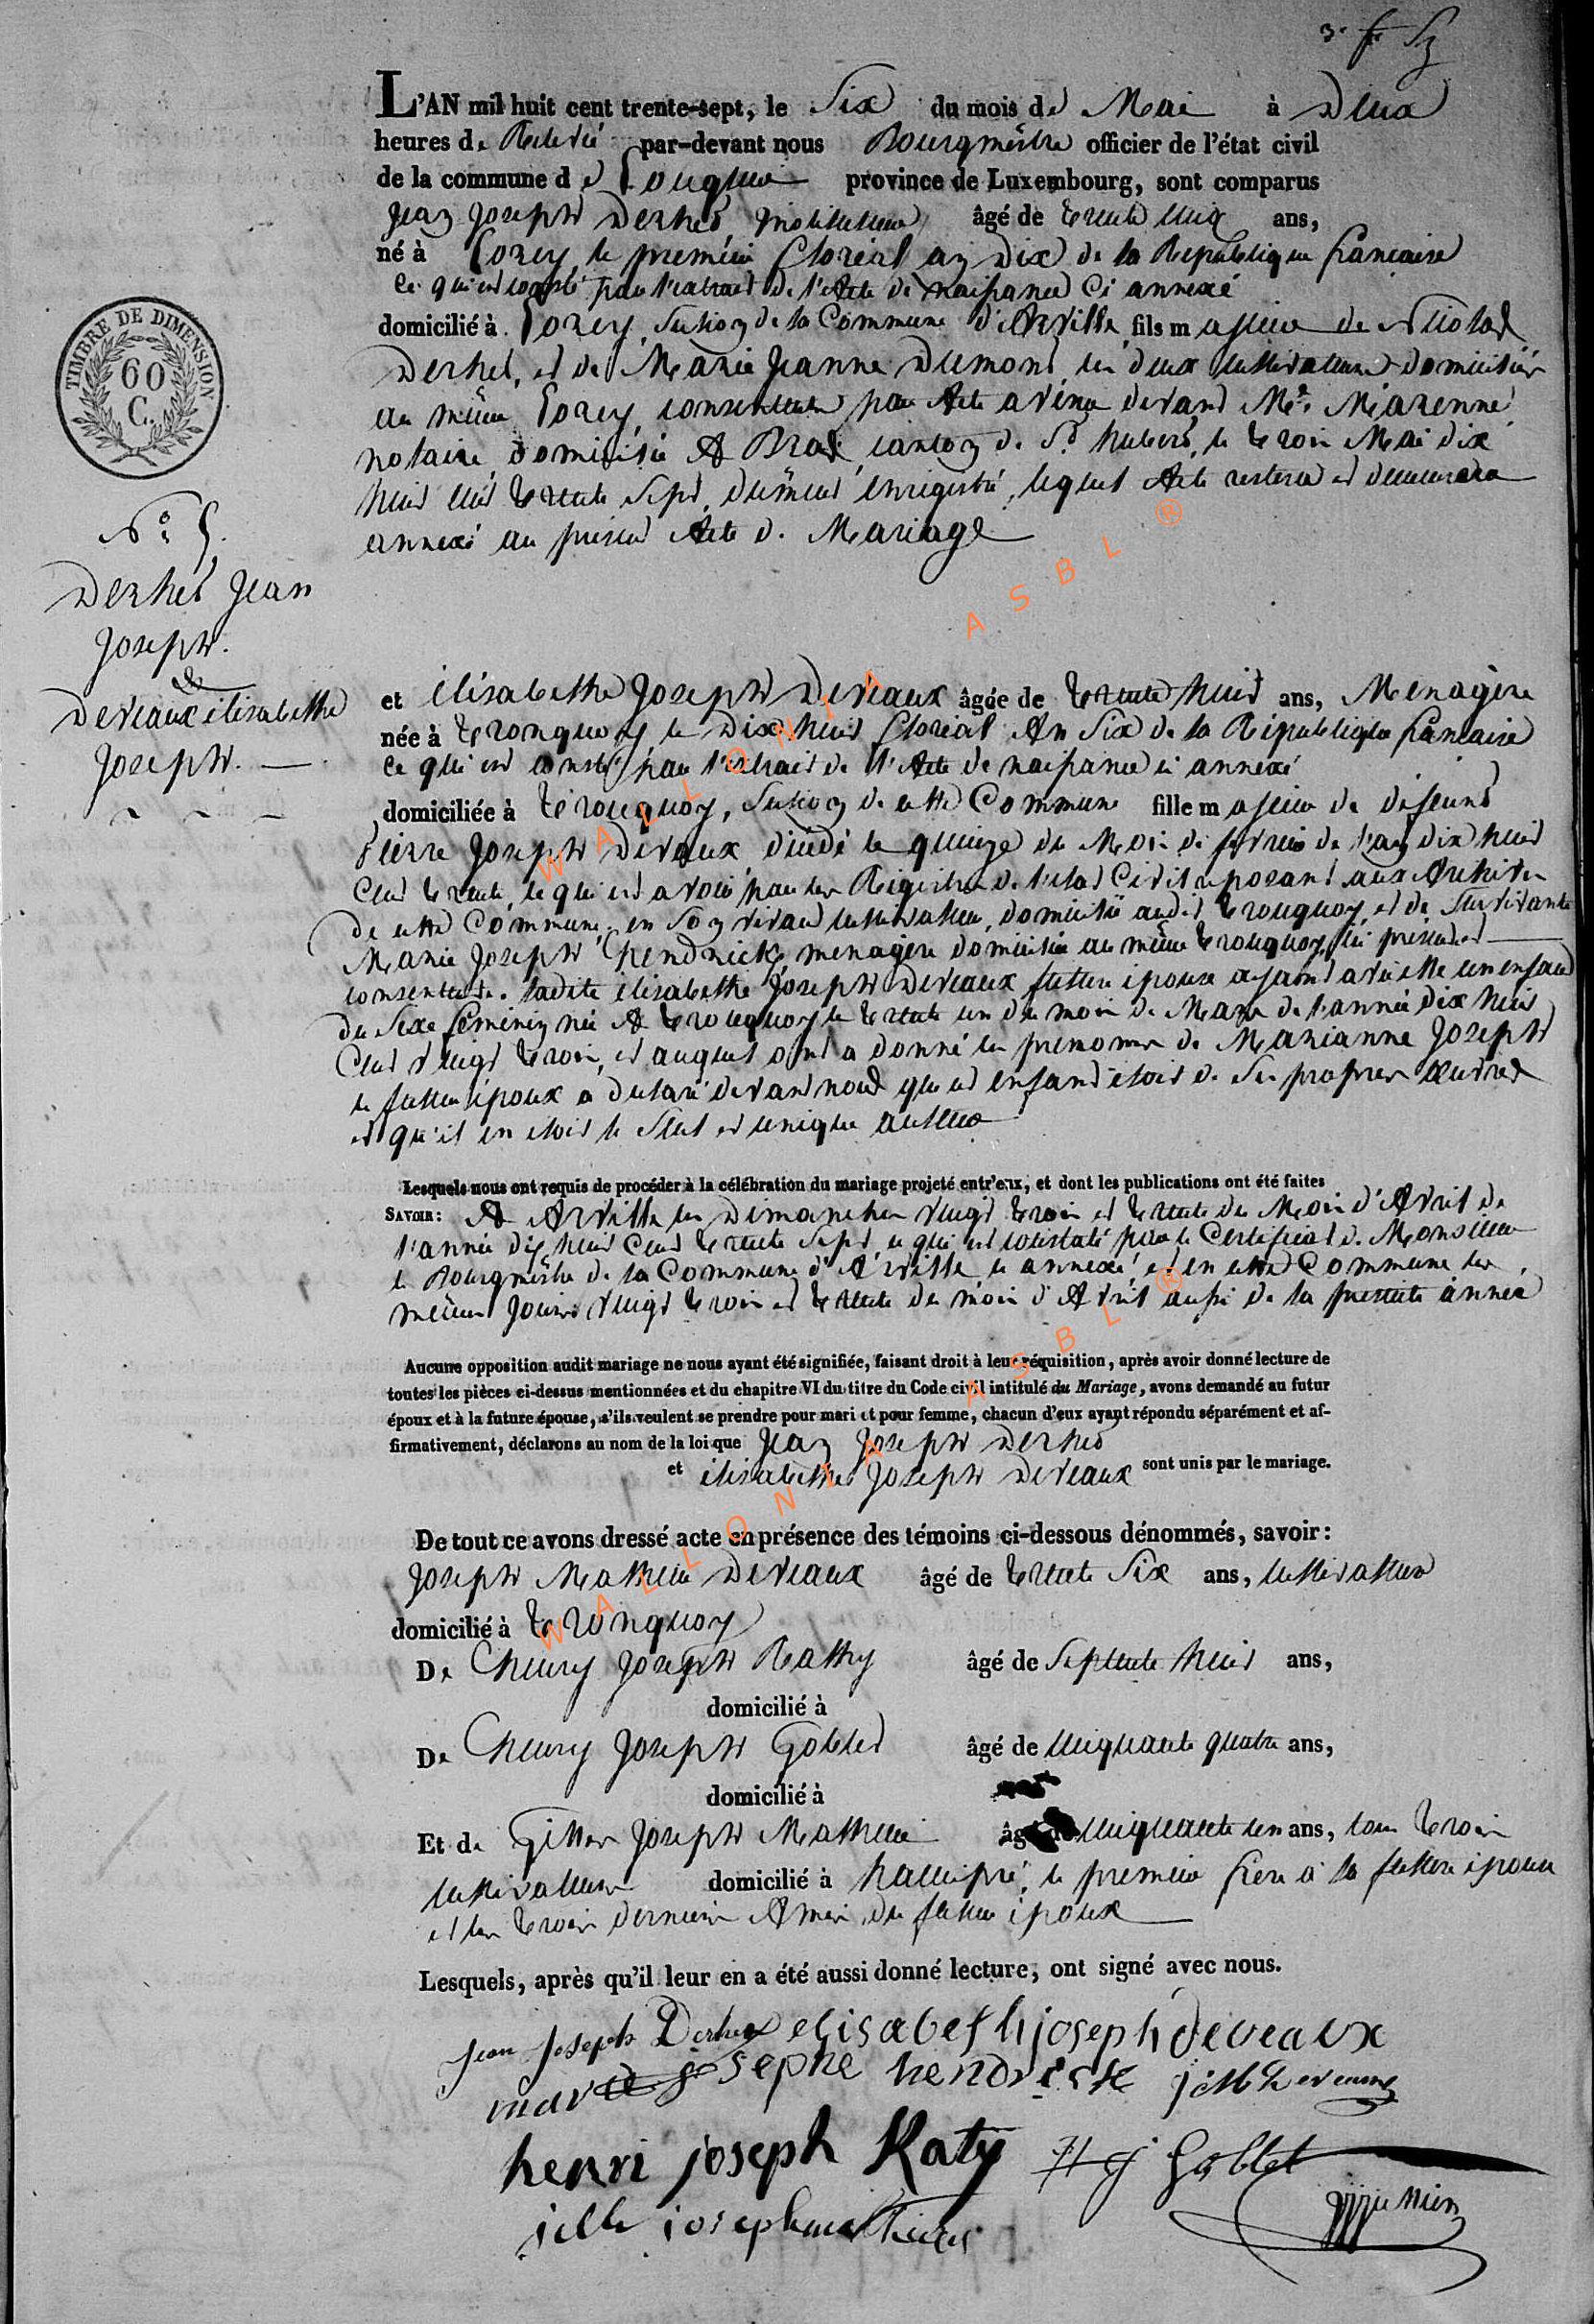 L'AN mil huit cent trente-sept, le Six du mois de Mai à Deux
heures de Relevé par-devant nous Bourgmêstre officier de l'état civil
de la commune de province de Luxembourg, sont comparus
Jean Joseph Derhet, instituteur âgé de trente cinq ans,
né à Lorcy, le premier floréal an Dix de la Republique francaise
ce qui est constaté par l'extrait de l'Acte de naissance ci annexé
domicilié à Lorcy, Section de la Commune d'Arville, fils majeur de Nicolas
Derhet, et de Marie Jeanne Dumont, les deux cultivateurs domiciliés
au même Lorcy, consentants par Acte avénu devant Me. Marenne
notaire domicilié A Bras, canton de St. hubert, le trois Mai dix
huit cent trente Sept, dûment enregistré, lequel Acte restera et demeurera
annexé au présent Acte de Mariage
TIMBRE DE DIMENSION
60
C.
N° 5.
Derhet Jean
Joseph.
&
Deveaux élisabethe
Joseph.
et élisabethe Joseph Deveaux âgée de trente huit ans, Menagère
née à tronquoy le Dix huit floréal An Six de la République francaise
ce qui est constaté par l'extrait de l'Acte de naissance ci annexé
domiciliée à tronquoy, Section de cette Commune fille majeure de défeunt
Pierre Joseph Deveaux décédé le quinze du Mois de fevrier de l'an dix huit
Cent trente, ce qui est avoué par les Régistres de l'etat Civil reposant aux Archives
de cette Commune, en Son vivant cultivateur, domicilié audit tronquoy, et de Survivante
Marie Joseph hendrick, menagère domiciliée au même tronquoy, ici presente et
consentante. ladite élisabethe Joseph Deveaux future épouse ayant avec elle un enfant
du Sexe féminin née A tronquoy le trente un du mois de Mars de l'année dix huit
Cent vingt trois, et auquel on a donné les prenoms de Marianne Joseph
le futur époux a declaré devant nous que cet enfant étoit de Ses propres œuvres
et qu'il en étoit le Seul et unique auteur
Lesquels nous ont requis de procéder à la célébration du mariage projeté entr'eux, et dont les publications ont été faites
SAVOIR: A Arville les Dimanches vingt trois et trente du Mois d'Avril de
l'année dix huit Cent trente Sept, ce qui est constaté par le Certificat de Monsieur
le Bourgmêstre de la Commune d'Arville ci annexé et en cette Commune les
mêmes Jours vingt trois et trente du mois d'Avril aussi de la présente année
Aucune opposition audit mariage ne nous ayant été signifiée, faisant droit à leur réquisition, après avoir donné lecture de
toutes les pièces ci-dessus mentionnées et du chapitre VI du titre du Code civil intitulé du Mariage, avons demandé au futur
époux et à la future épouse, s'ils veulent se prendre pour mari et pour femme, chacun d'eux ayant répondu séparément et af-
firmativement, déclarons au nom de la loi que Jean Joseph Derhet
et élisabethe Joseph Deveaux sont unis par le mariage.
De tout ce avons dressé acte en présence des témoins ci-dessous dénommés, savoir:
Joseph Mathieu Deveaux âgé de trente Six ans, cultivateur
domicilié à tronquoy
De henry Joseph Rathy âgé de Septente huit ans,
domicilié à
De henry Joseph Goblet âgé de cinquante quatre ans,
domicilié à
Et de Gilles Joseph Mathieu âgé de cinquante un ans, tous trois
cultivateurs domicilié à hamipré, le premier frère à la future épouse
et les trois derniers Amis du futur époux
Lesquels, après qu'il leur en a été aussi donné lecture, ont signé avec nous.
Jean Joseph Derhet elisabeth joseph deveaux
marie josephe hendrick
henri joseph Raty H J Goblet
jille joseph mathieu
WALLONIA ASBL ®
WALLONIA ASBL ®